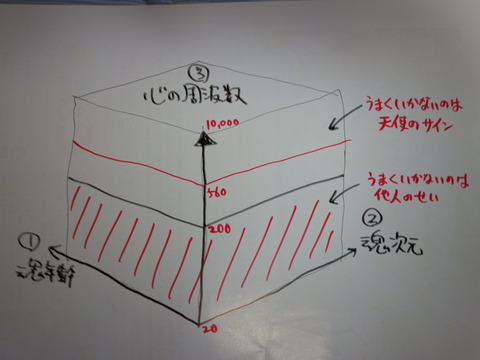 ③
心の周波数
10,000
うまくいかないのは
天使のサイン
560
うまくいかないのは
他人のせい
200
①
魂年齢
②
魂次元
20